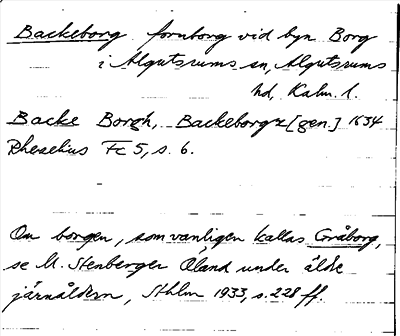 Backeborg fornborg vid byn Borg
i Algutsrums sn, Algutsrums
hd, Kalm. l.
Backe Borgh, Backeborgz [gen.] 1634
Rhezelius Fc 5, s. 6.
Om borgen, som vanligen kallas Gråborg,
se M. Stenberger Öland under äldre
järnåldern, Sthlm 1933, s. 228 ff.